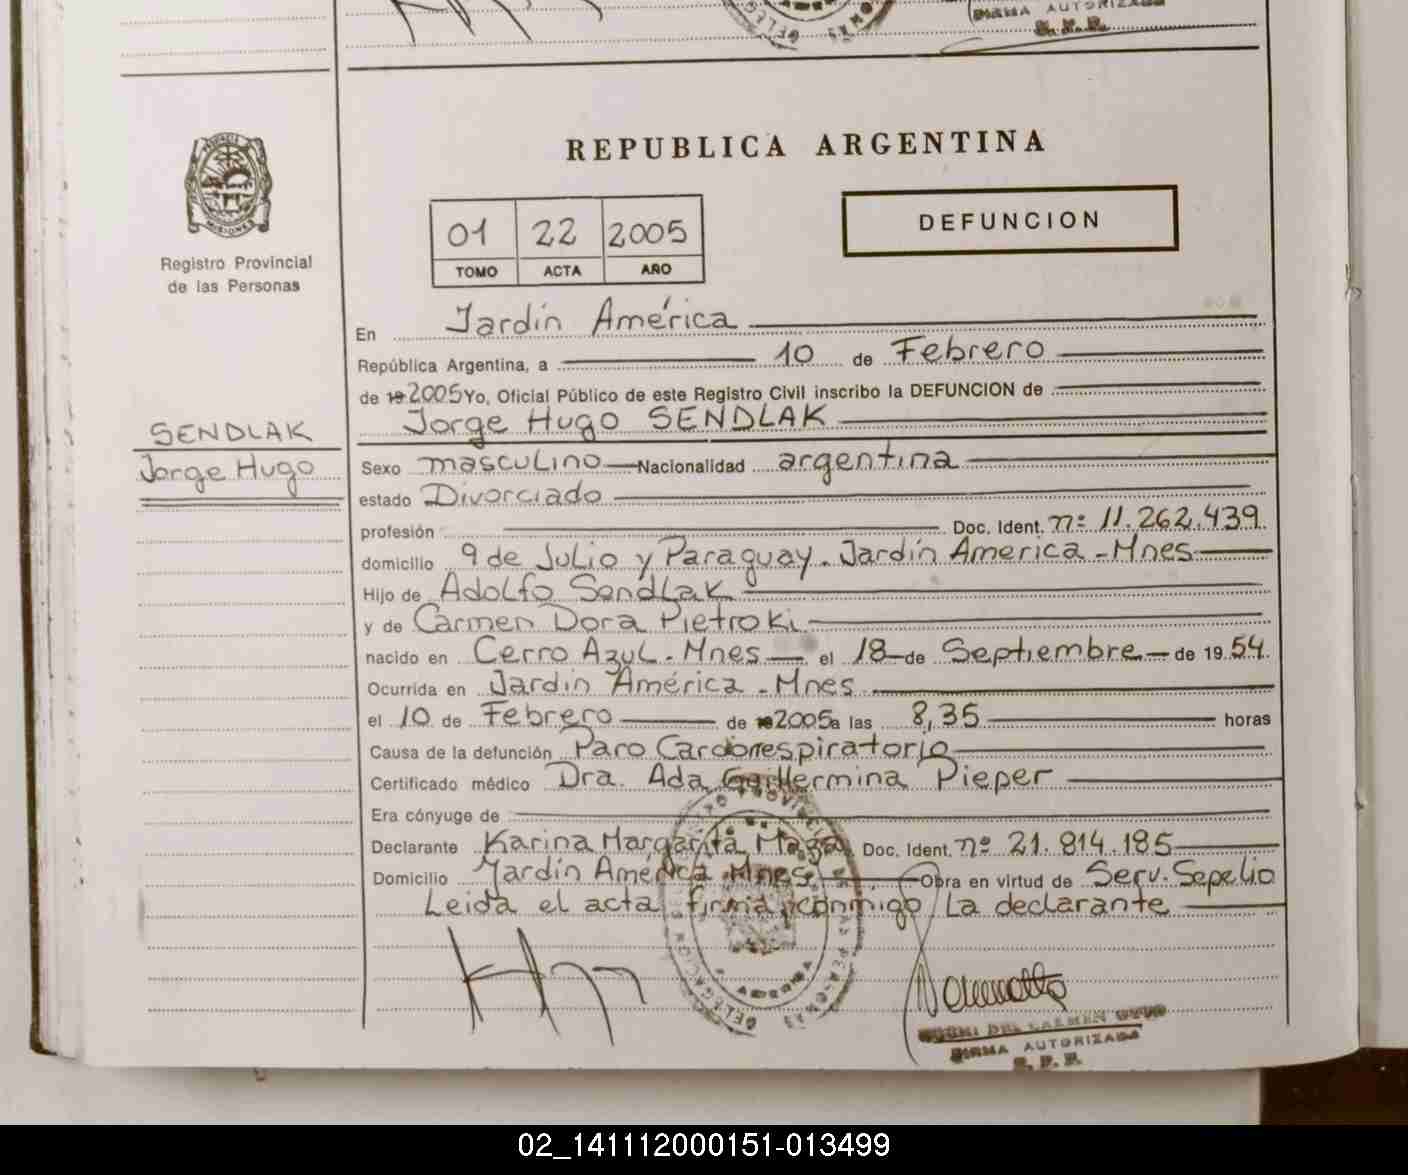 FIRMA AUTORIZADA
R. P. P.
REPUBLICA ARGENTINA
01 22 2005
TOMO ACTA AÑO
DEFUNCION
MISIONES
Registro Provincial
de las Personas
En Jardín América
República Argentina, a 10 de Febrero
de 19 2005 Yo, Oficial Público de este Registro Civil inscribo la DEFUNCION de
Jorge Hugo SENDLAK
SENDLAK
Jorge Hugo
Sexo masculino Nacionalidad argentina
estado Divorciado
profesión Doc. Ident. nº 11.262.439
domicilio 9 de Julio y Paraguay. Jardín America - Mnes
Hijo de Adolfo Sendlak
y de Carmen Dora Pietroki
nacido en Cerro Azul - Mnes el 18 de Septiembre de 1954.
Ocurrida en Jardín América - Mnes
el 10 de Febrero de 19 2005 a las 8,35 horas
Causa de la defunción Paro Cardiorrespiratorio
Certificado médico Dra. Ada Guillermina Pieper
Era cónyuge de
Declarante Karina Margarita Maza Doc. Ident. nº 21.814.185
Domicilio Jardín América Mnes Obra en virtud de Serv. Sepelio
Leida el acta, firma conmigo La declarante
DEL CARMEN
FIRMA AUTORIZADA
R. P. P.
02_141112000151-013499